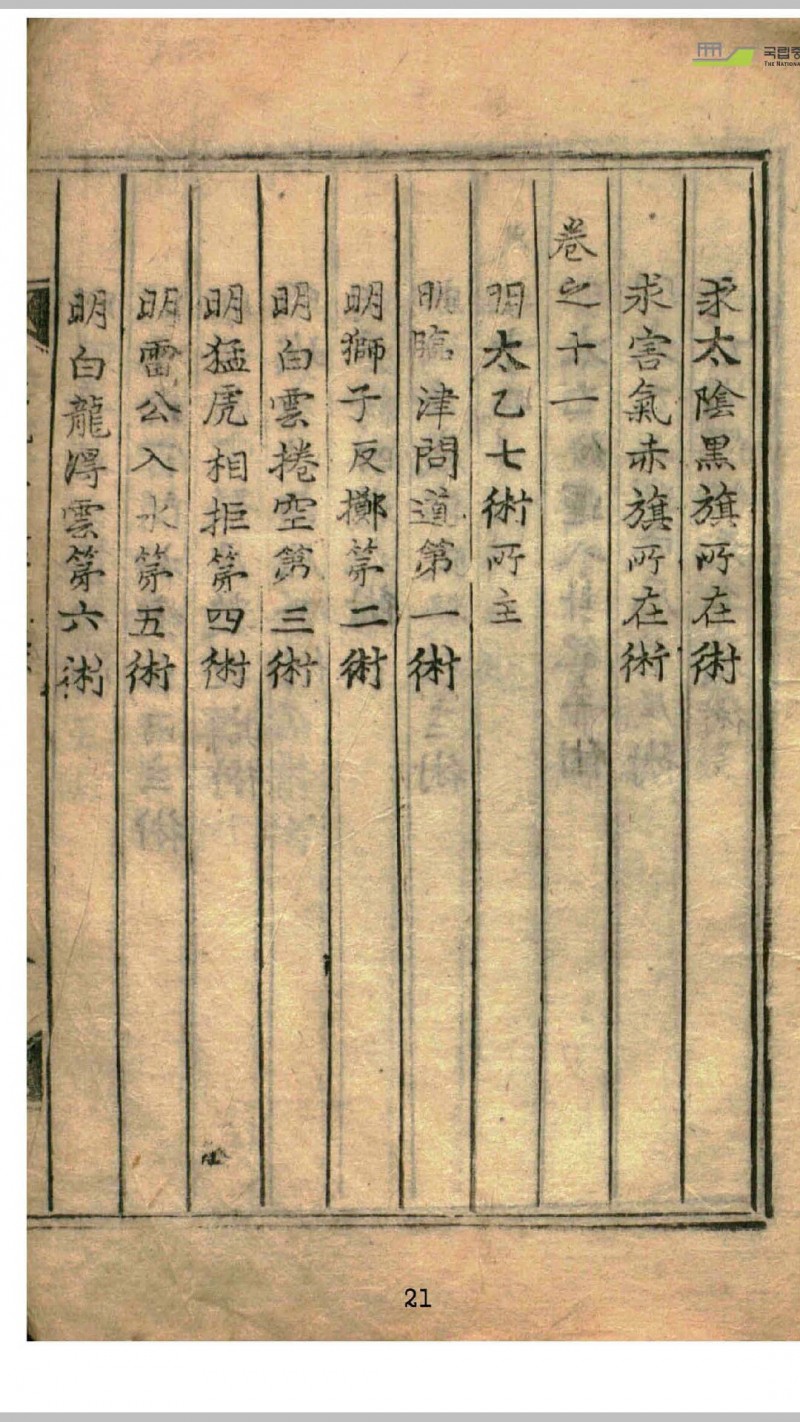 求太陰黑旗所在術
求害氣赤旗所在術
卷之十一
明太乙七術所主
明臨津問道第一術
明獅子反擲第二術
明白雲捲空第三術
明猛虎相拒第四術
明雷公入水第五術
明白龍得雲第六術
국립중
THE NATIONA
21